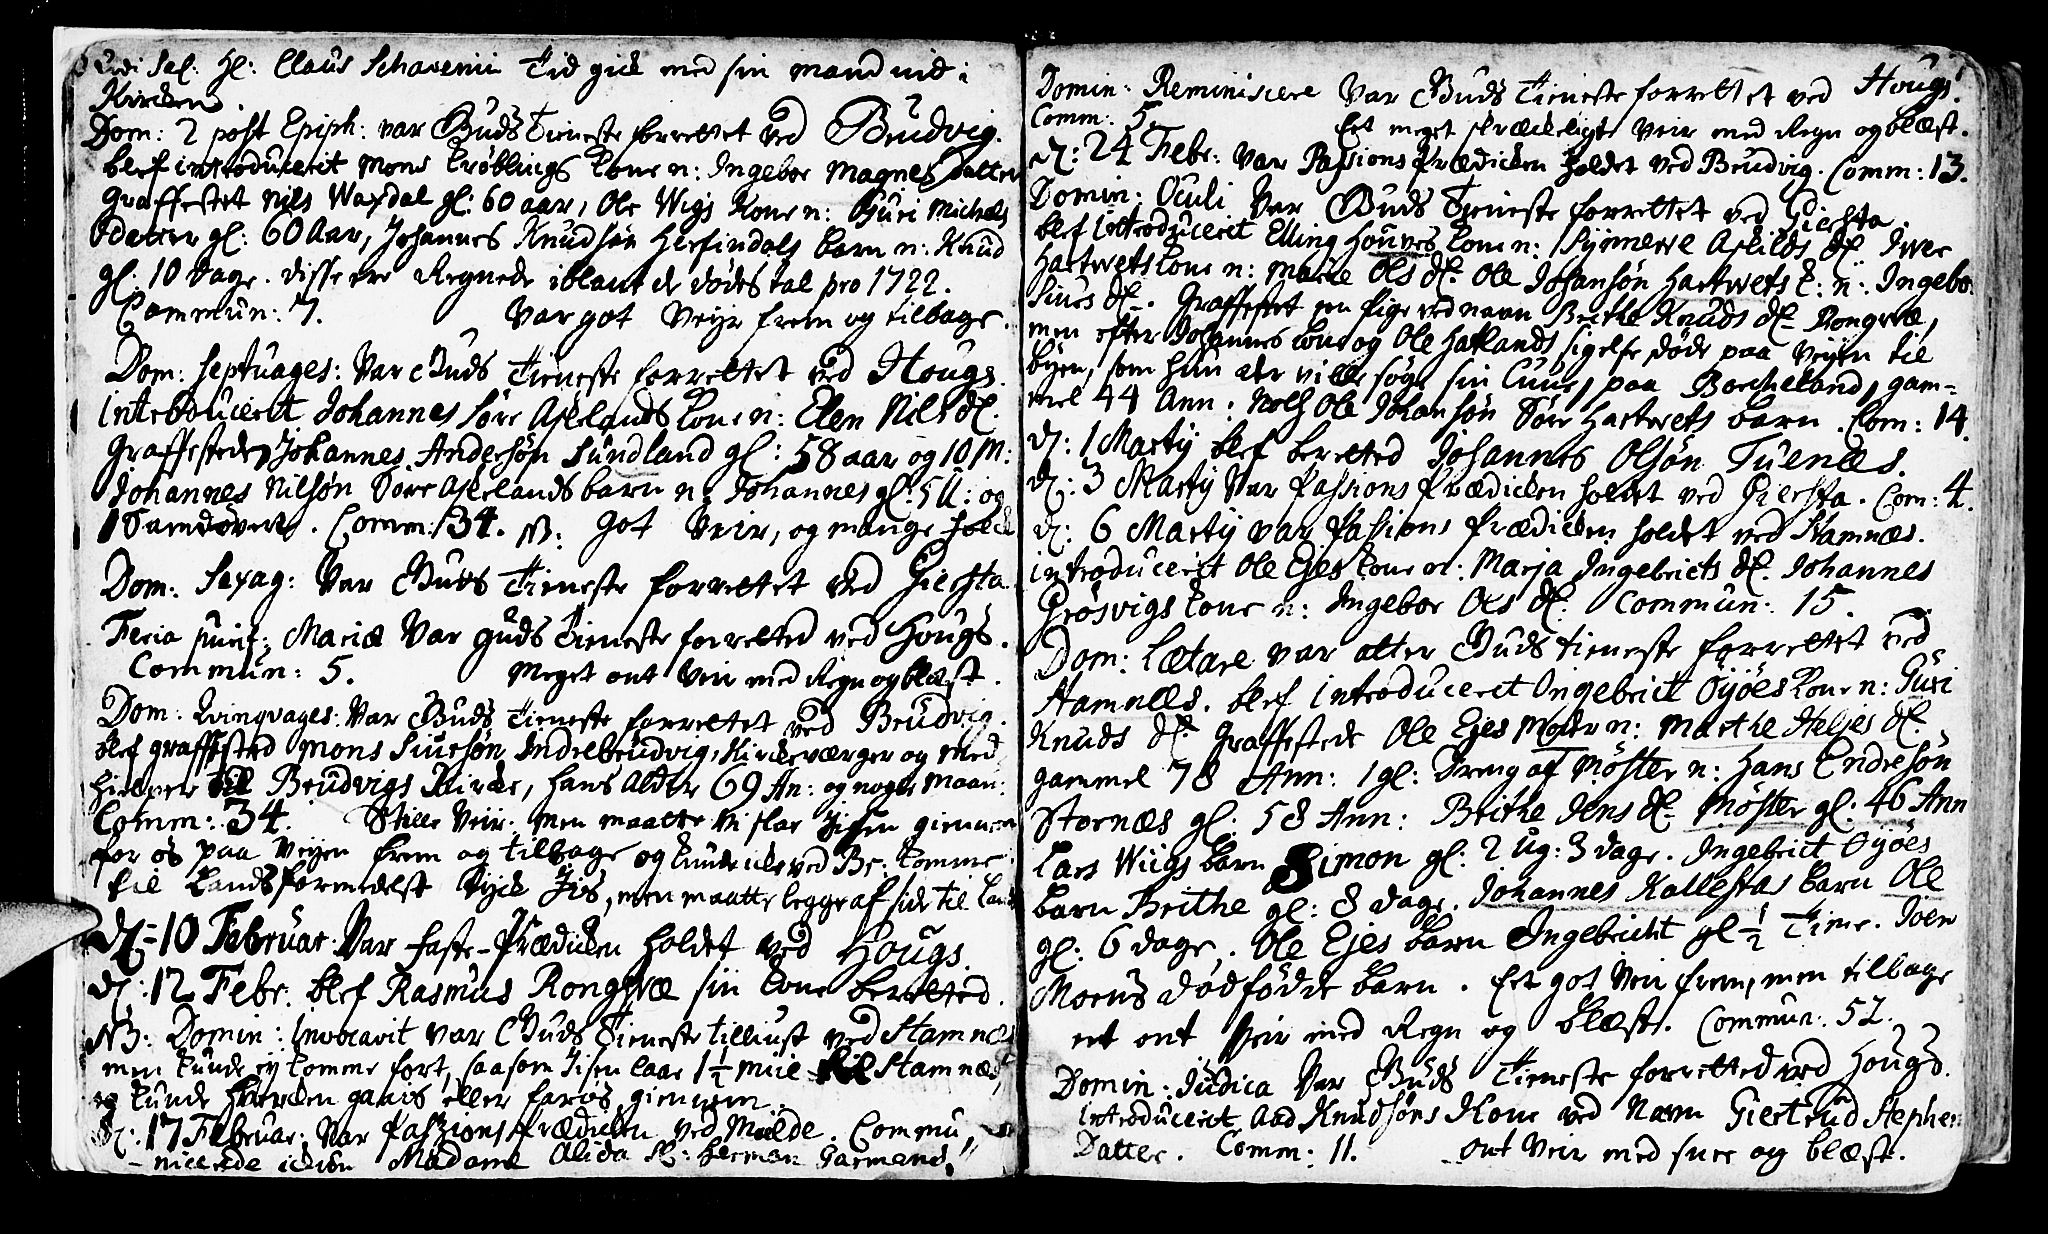 i Sal: Hl: Claus Schavenii Tid gick med sin mand ind i
Kircken.
Dom: 2 post Epiph: var Guds Tieneste forrettet ved Brudvig.
blef introducerit Mons Kone n: Ingebor Magnes Datter
Graffestet Nils Waxdal gl: 60 aar, Ole Wigs Kone n: Guri Michels
datter gl: 60 Aar, Johannes Knudsøn Herfindals barn n: Knud
gl: 10 dage. disse ere Regnede iblant de dødes tal pro 1722.
Commun: 7. Var got Veyr frem og tilbage.
Dom: Septuages: Var Guds Tieneste forrettet ved Hougs.
introducerit Johannes Søre Aselands Kone n: Elen Nils dl.
Graffestede Johannes Andersøn Sundland gl: 58 aar og 10 M:
Johannes Nilsøn Søre Aselands barn n: Johannes gl: 5 U: og
1 Comm: 34. NB: got Veir, og mange
Dom: Sexag: Var Guds Tieneste forrettet ved Giersta.
Feria purif: Mariæ Var guds Tieneste forretted ved Hougs.
Commun: 5. Meget ont Veir med Regn og blæst.
Dom: Qvinqvages: Var Guds Tieneste forrettet ved Brudvig.
blef graffested Mons Siursøn Indrebrudvig, Kirkeværger og med
hielper til Brudvigs Kircke, hans Alder 69 An: og nogle Maan:
Comm: 34. Stille Veir, men maatte vi slae Jisen giennem
for os paa Veyen frem og tilbage og kunde icke ved Br: komme
til Lands formedelst tyck Jis, men maatte legge af side til Land
dl: 10 Februar Var faste-Prædicken holdet ved Hougs.
dl: 12 Febr. blef Rasmus Rongwæ sin Kone beretted.
NB: Domin: Invocavit var Guds Tieneste tilliust ved Stamnæs
men kunde ey komme fort, saasom Jisen laae 1½ Miil til Stamnæs,
og kunde hverken gaais eller faris giennem.
dl: 17 Februar: Var Passions Prædicken ved Mielde. Commu,,
nicerede ickun Madame Alida Sl: Herman Garmand.
Domin: Reminiscere Var Guds Tieneste forrettet ved Hougs.
Comm: 5. Et meget skrækeligt Veir med Regn og blæst.
dl: 24 Febr: Var Passions Prædicken holdet ved Brudvig. Comm: 13.
Domin: Oculi Var Guds Tieneste forrettet ved Giersta.
blef Introducerit Elling Houves Kone n: Synnerve Aslilds dl. Iver
Hartwets Kone n: Marie Ols dl. Ole Johansøn Hartwets K: n: Ingebo:
Siurs dl. Graffestet en Pige ved navn Brithe Knuds dl. Rongwæ,
men efter Johannes Kone og Ole Hatlands sigelse døde paa Veyen til
byen, som hun der ville søge sin Cuur, paa Borcheland, gam-
mel 44 Ann: Ole Johansøn Søre Hartwets barn. Com: 14.
dl: 1 Martij blef beretted Johannes Olsøn Tuenæs.
dl: 3 Martij Var Passions Prædicken holdet ved Giersta. Com: 4.
dl: 6 Martij var Passions Prædicken holdet ved Stamnæs.
introducerit Ole Ejes Kone n: Marja Ingebricts dl. Johannes
Grøsvigs Kone n: Ingebor Ols dl: Commun: 15.
Dom: Lætare var atter Guds tieneste forrettet ved
Stamnæs. blef introducerit Ingebrict Øyøes Kone n: Guri
Knuds dl. Graffestede Ole Ejes Moder n: Marthe Heljes dl.
gammel 78 Ann: 1 gl: Dreng af Møster n: Hans Endresøn
Stornæs gl: 58 Ann: Brithe Jens dl. Møster gl: 46 Ann
Lars Wiigs barn Simon gl: 2 ug: 3 dage. Ingebrict Øyøes
barn Brithe gl: 8 dage. Johannes Kallestas barn Ole
gl: 6 dage. Ole Ejes barn Ingebricht gl ½ Time. Joen
Moens dødfødde barn. Et got Veir frem, men tilbage
et ont Veir med Regn og blæst. Commun: 52.
Domin: Judica Var Guds Tieneste forretted ved Hougs.
Introducerit Aad Knudsøns Kone ved Navn Giertrud Stephens
Datter. Comm: 11. ont Veir med snee og blæst.